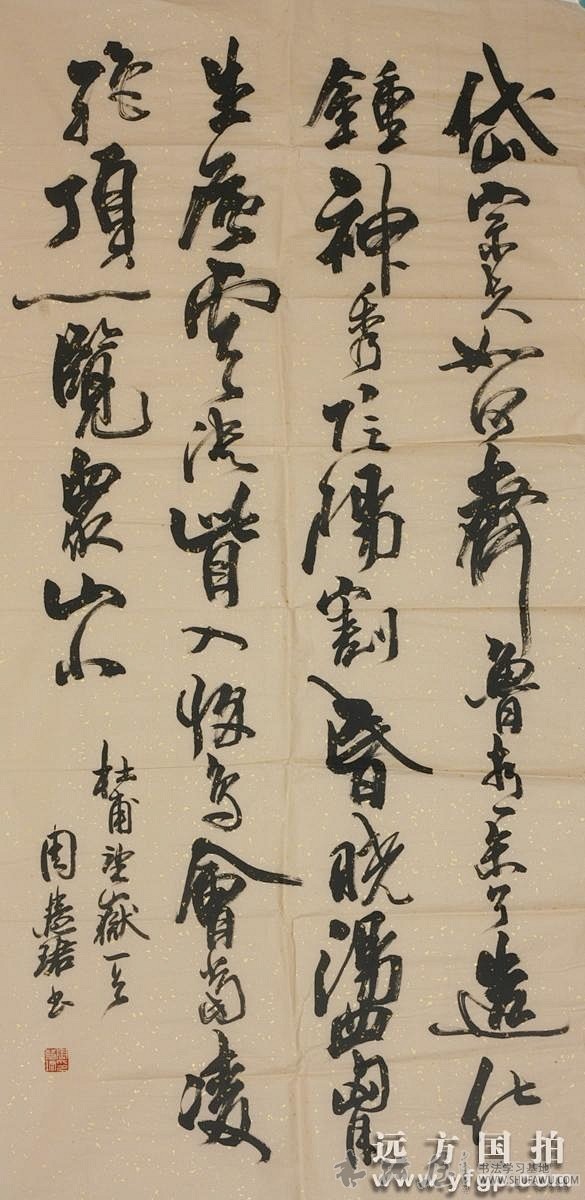 岱宗夫如何齊魯青未了造化
鍾神秀陰陽割昏曉盪胷
生層雲決眥入歸鳥會當凌
絕頂一覽眾山小
杜甫望嶽一首
周慧珺書
远方国拍
书法学习基地
WWW.SHUFAWU.COM